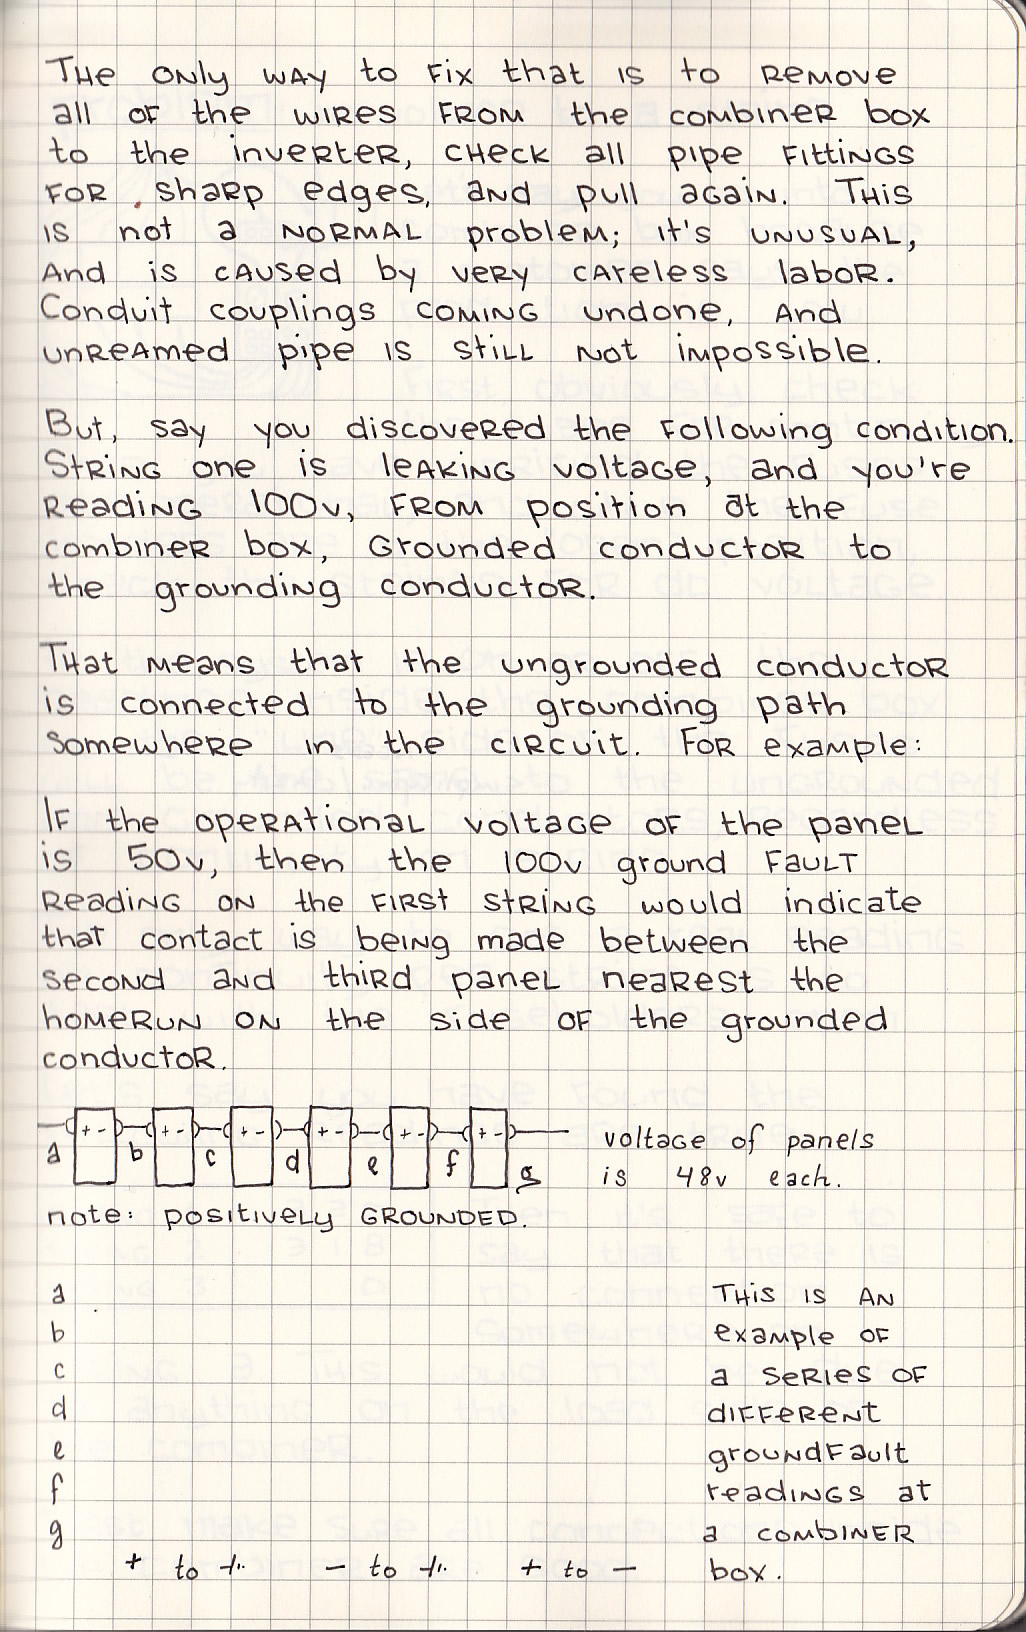 THe ONLy WAY to Fix that is to Remove
all OF the WIRes FROM the combineR box
to the inveRteR, CHeck all pipe Fittings
FOR shaRp edges, and pull again. THis
is not a NORMAL problem; it's UNUSUAL,
And is cAused by veRy cAReless laboR.
Conduit couplings COMING undone, And
unReAmed pipe is still Not impossible.
But, say you discoveRed the Following condition.
StRiNG one is leAKiNG voltage, and you're
Reading 100v, FROM position at the
combineR box, GRounded conductoR to
the grounding conductoR.
THat means that the ungrounded conductoR
is connected to the grounding path
somewheRe in the ciRcuit. FoR example:
IF the opeRAtionaL voltage OF the paneL
is 50v, then the 100v ground FauLT
Reading ON the FIRSt stRiNG would indicate
that contact is being made between the
second and thiRd paneL neaRest the
homeRuN ON the side OF the grounded
conductoR.
+ - + - + - + - + - + -
a b c d e f g
voltage of panels
is 48v each.
note: positiveLy GROUNDED.
a
b
c
d
e
f
g
THis is AN
example OF
a seRies OF
diFFeReNt
grouNdFault
readiNGs at
a combiNeR
box.
+ to ⏚ - to ⏚ + to -